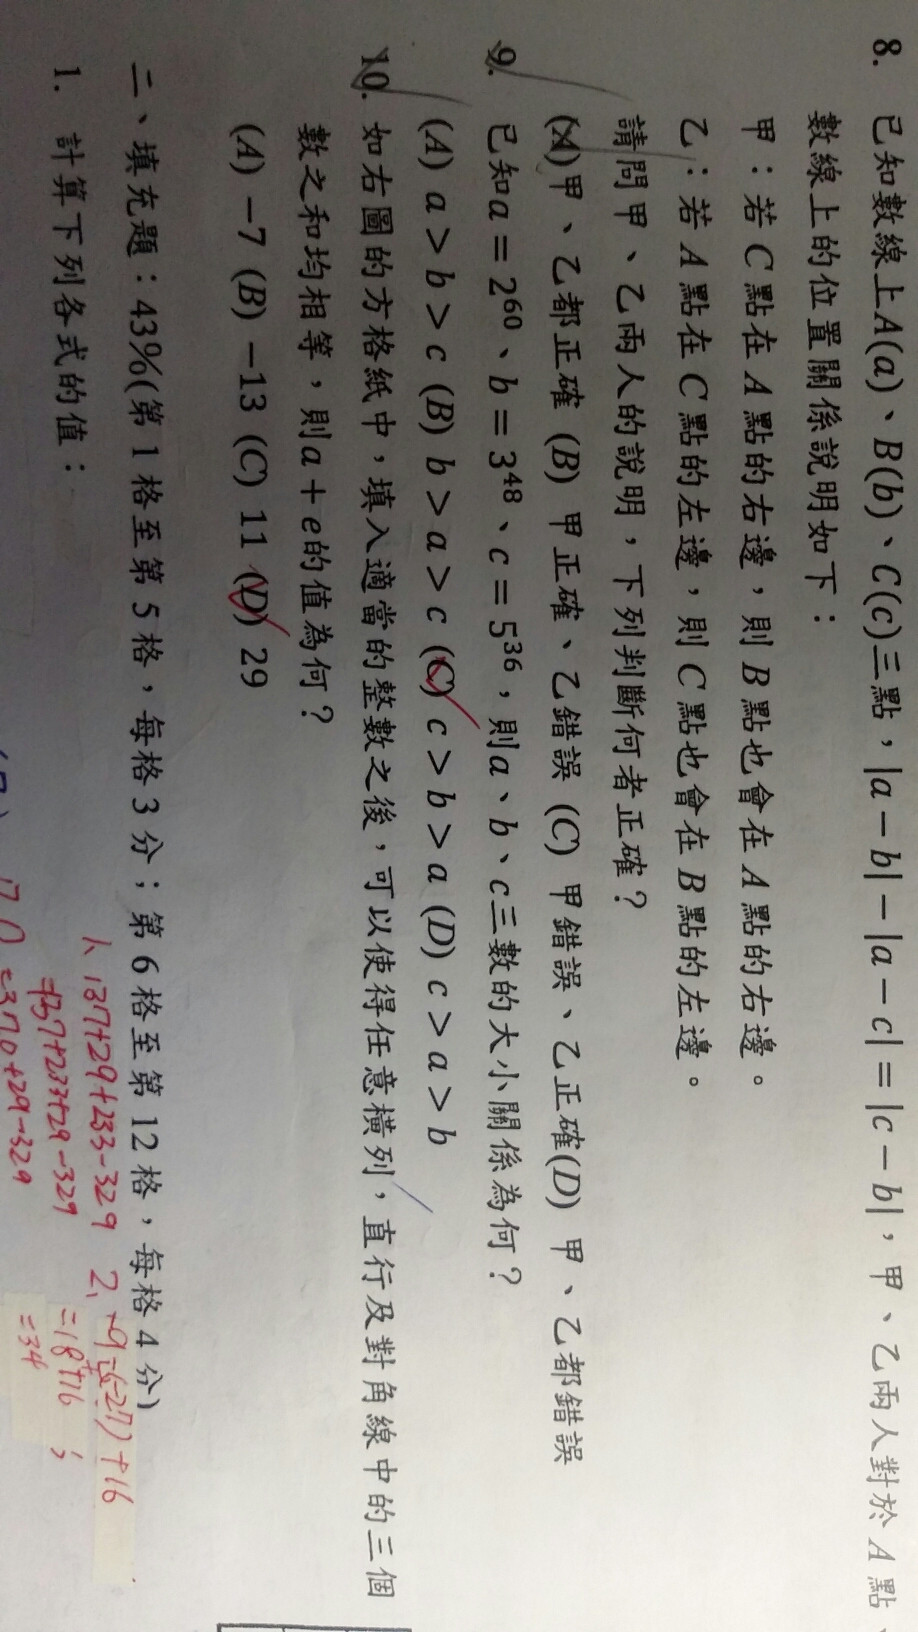 8. 已知數線上A(a)、B(b)、C(c)三點，|a－b|－|a－c|＝|c－b|，甲、乙兩人對於 A 點、
數線上的位置關係說明如下：
甲：若 C 點在 A 點的右邊，則 B 點也會在 A 點的右邊。
乙：若 A 點在 C 點的左邊，則 C 點也會在 B 點的左邊。
請問甲、乙兩人的說明，下列判斷何者正確？
(A)甲、乙都正確 (B) 甲正確、乙錯誤 (C) 甲錯誤、乙正確(D) 甲、乙都錯誤
9. 已知a＝2⁶⁰、b＝3⁴⁸、c＝5³⁶，則a、b、c三數的大小關係為何？
(A) a＞b＞c (B) b＞a＞c (C) c＞b＞a (D) c＞a＞b
10. 如右圖的方格紙中，填入適當的整數之後，可以使得任意橫列，直行及對角線中的三個
數之和均相等，則a＋e的值為何？
(A) －7 (B) －13 (C) 11 (D) 29
二、填充題：43%(第 1 格至第 5 格，每格 3 分；第 6 格至第 12 格，每格 4 分)
1. 計算下列各式的值：
1、137+29+233-329
=137+233+29-329
=370+29-329
2、-9 (-27)+16
=18+16
=34